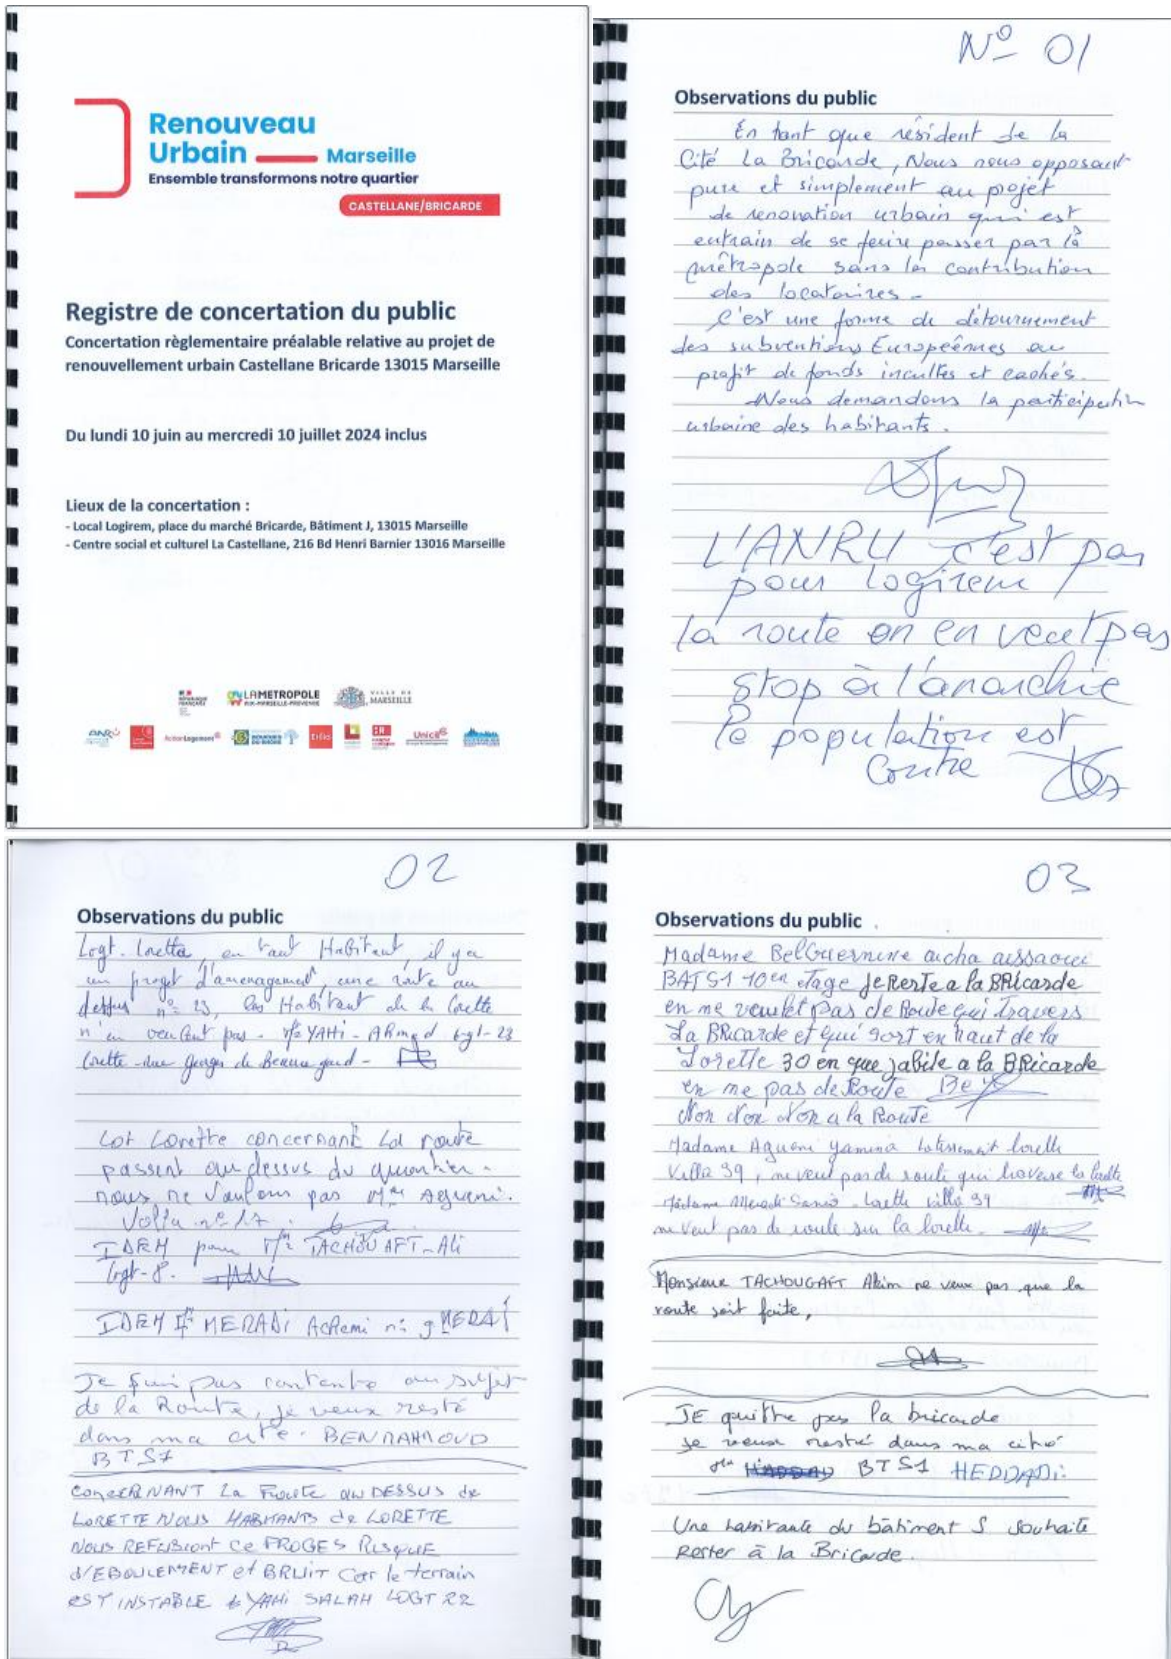 Renouveau
Urbain Marseille
Ensemble transformons notre quartier
CASTELLANE/BRICARDE
Registre de concertation du public
Concertation règlementaire préalable relative au projet de
renouvellement urbain Castellane Bricarde 13015 Marseille
Du lundi 10 juin au mercredi 10 juillet 2024 inclus
Lieux de la concertation :
- Local Logirem, place du marché Bricarde, Bâtiment J, 13015 Marseille
- Centre social et culturel La Castellane, 216 Bd Henri Barnier 13016 Marseille
RÉPUBLIQUE
FRANÇAISE
LAMETROPOLE
AIX-MARSEILLE-PROVENCE
VILLE DE
MARSEILLE
ANRU
ActionLogement
BOUCHES
DU RHÔNE
Erilia
Unicil
N° 01
Observations du public
En tant que résident de la
Cité La Bricarde, Nous nous opposant
pure et simplement au projet
de renovation urbain qui est
entrain de se feire passer par la
métropole sans la contribution
des locataires -
C'est une forme de détournement
des subventions Européènnes au
profit de fonds incultes et cachés.
Nous demandons la participation
urbaine des habitants.
L'ANRU c'est pas
pour Logirem
la route on en veut pas
stop à l'anarchie
la population est
contre
02
Observations du public
Logt. Loretta, en tant Habitant, il y a
un projet d'amenagement, une route au
dessus n° 23, les Habitant de la Lorette
n'en veulent pas - Mr YAHi - AHmed Lgt-23
Lorette - rue Georges de Beauregard -
Lot Lorette concernant La route
passent au dessus du quartier -
nous ne Voulons pas Mme Agueni.
Volla n° 17.
IDEM pour Mr TACHOUAFT-Ali
Logt-8.
IDEM Mr MERADi Achemi n° 9 MERAI
Je suis pas contente au sujet
de la Route, je veux resté
dans ma cité. BENMAHMOUD
BTS1
CONCERNANT La Route au DESSUS de
LORETTE NOUS HABITANTS de LORETTE
NOUS REFUSIONT ce PROGES RISQUE
d'EBOULEMENT et BRUIT Car le terrain
EST INSTABLE YAHi SALAH LOGT 22
03
Observations du public
Madame BelGuernine aicha aissaoui
BATS1 10en etage Je Reste a la BRicarde
en me veullet pas de Route qui travers
La BRicarde et qui sort en haut de la
Lorette 30 en que jabite a la BRicarde
en me pas de Route
Non Non Non a la Route
Madame Agueni Yamina lotissement lorette
Villa 39, ne veut pas de route qui traverse la lorette
Madame Meradi Samia - Lorette villa 39
ne veut pas de route sur la lorette.
Monsieur TACHOUGAFT Akim ne veux pas que la
route soit faite,
JE quitte pas la bricarde
je veux resté dans ma cité
BTS1 HEDDADi
Une habitante du bâtiment S souhaite
Rester à la Bricarde.